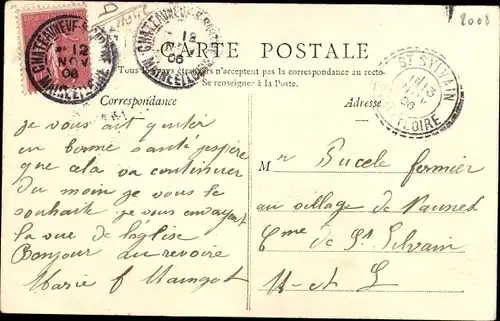 2008
CHATEAUNEUF-S-SARTHE
12
NOV
06
MAINE ET LOIRE
CHATEAUNEUF-S-SARTHE
12
NOV
06
MAINE ET LOIRE
CARTE POSTALE
Tous pays étrangers n'acceptent pas la correspondance au recto
Se renseigner à la Poste.
ST SYLVAIN
06
LOIRE
Correspondance
Adresse
je vous ait quiter
en bonne santé j'espère
que cela va continuer
Du moin je vous le
souhaite je vous envoyent
la vue de l'église
Bonjour au revoire
Marie f Maingot
Mr Pucele fermier
au village de
Cme de St Silvain
M-et L